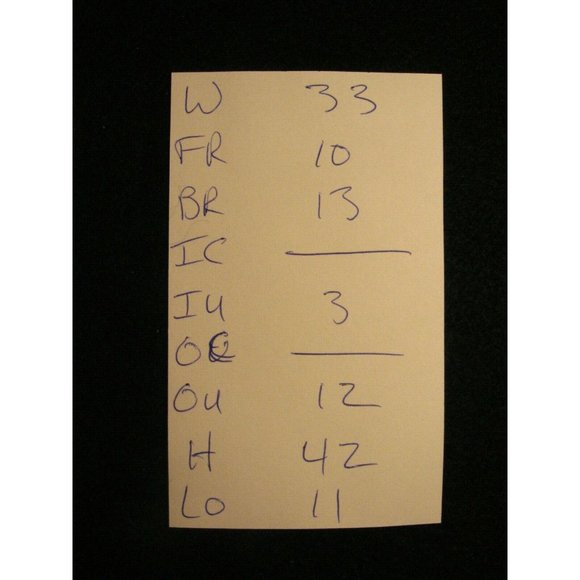 W 33
FR 10
BR 13
IC ———
IU 3
OC ———
OU 12
H 42
LO 11